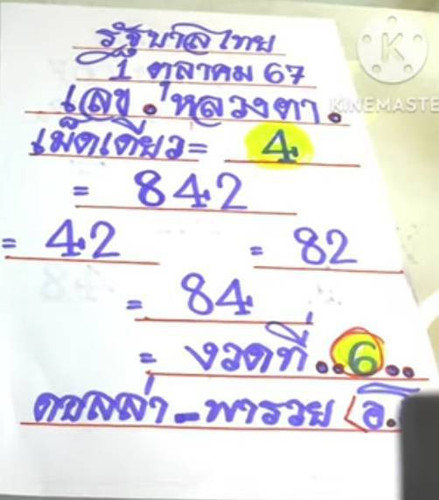 รัฐบาลไทย
1 ตุลาคม 67
KINEMASTE
เลข. หลวงตา.
เม็ดเดียว= 4
= 842
= 42 = 82
= 84
= งวดที่..6..
ดบลล่า-พารวย (อ.